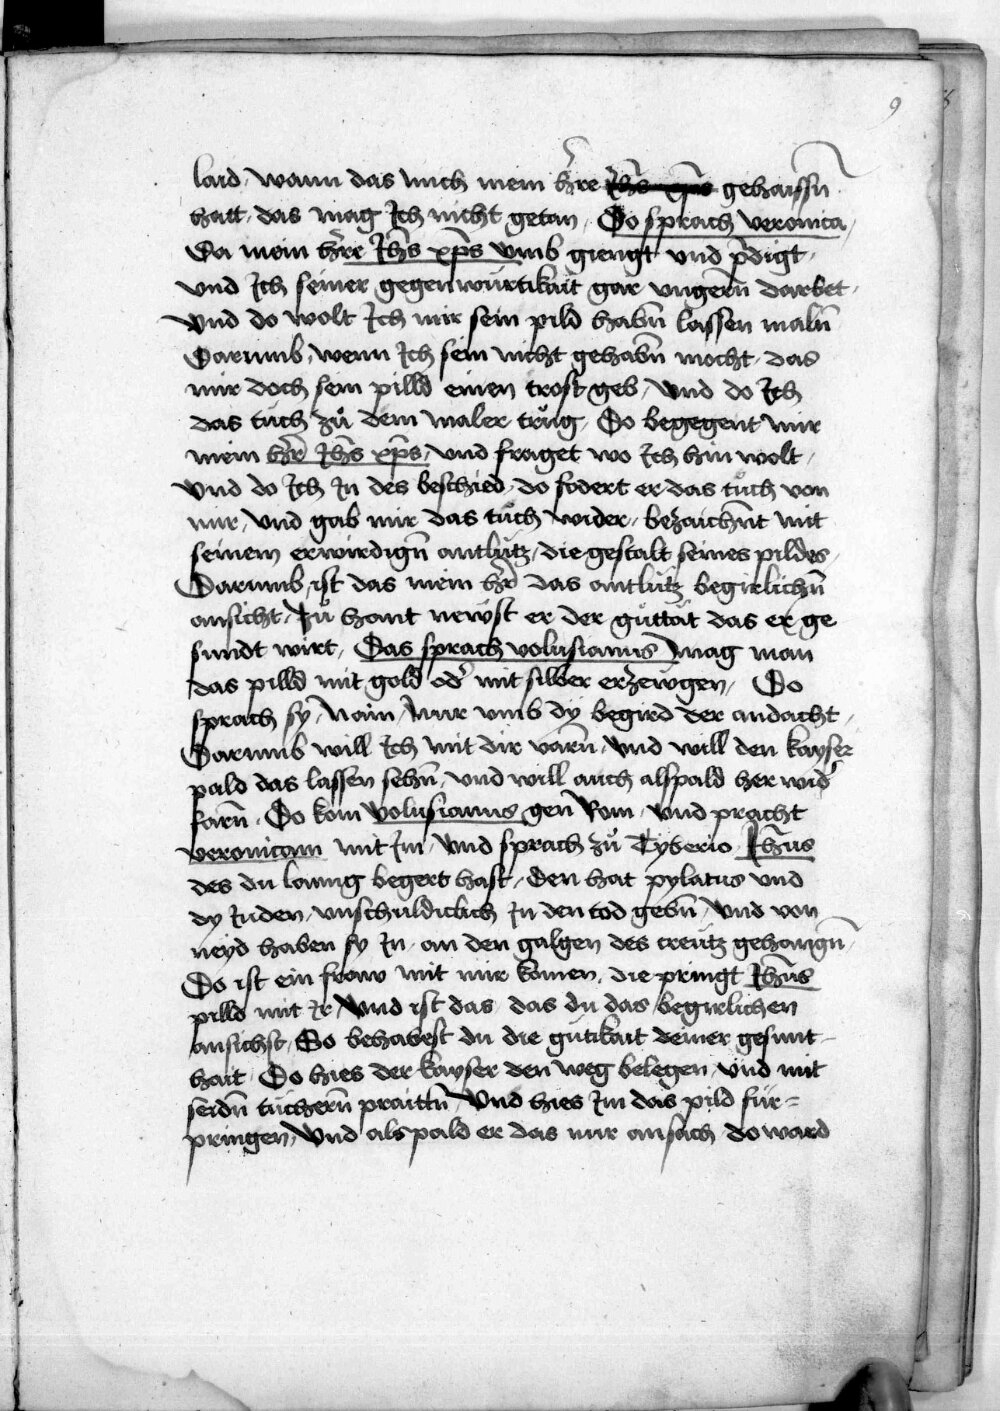 9
laid, wann das mich mein hr̄re Jhs̄ xp̄s gehaissn̄
hatt, das mag Jch nicht getan, Do sprach veronica,
Da mein hr̄re Jhs̄ xp̄s vmb giengt vnd pdigt,
vnd Jch seiner gegenwürtikait gar vngern̄ darbet,
vnd do wolt Jch mir sein pild habn̄ lassen maln̄
Darumb, wenn Jch sein nicht gehabn̄ mocht, das
mir doch sein pilld einen trost geb, vnd do Jch
das tuch zů dem maler trůg, Do begegent mir
mein hr̄ Jhs̄ xp̄s, vnd fraget wo Jch hin wolt,
vnd do Jch Jn des beschied, do fodert er das tůch von
mir, vnd gab mir das tůch wider, bezaichn̄t mit
seinem erwirdign̄ antlütz, die gestalt seines pildes,
Darumb, ist das mein hr̄ das antlütz begirlichn̄
ansicht, zů hant newst er der gůttät das er ge
sundt wirt, Das sprach volusianus mag man
das pilld mit gold od' mit silber erzewgen, Do
sprach sy, Nain, Nur vmb dy begird der andacht,
Darumb will Jch mit dir varn̄, vnd will den kayser
pald das lassen sehn̄, vnd will auch alspald her wid'
farn̄, Do kom volusianus gen Rom, vnd pracht
veronicam mit Jm, vnd sprach zů Tyberio Jhūs
des du lanng begert hast, Den hat pylatus vnd
dy Juden, vnschuldiclich Jn den tod gebn̄, vnd von
neyd haben sy Jn, an den galgen des creütz gehangn̄,
Do ist ein fraw mit mir komen, die pringt Jhūs
pilld mit Jr, vnd ist das, das du das begirlichen
ansichst, So behabest du die gütikait deiner gesunt
hait, Do hies der kayser den weg belegen, vnd mit
seidn̄ tüchern̄ praittn̄, vnd hies Jm das pild für=
pringen, vnd als pald er das nur ansach, do ward